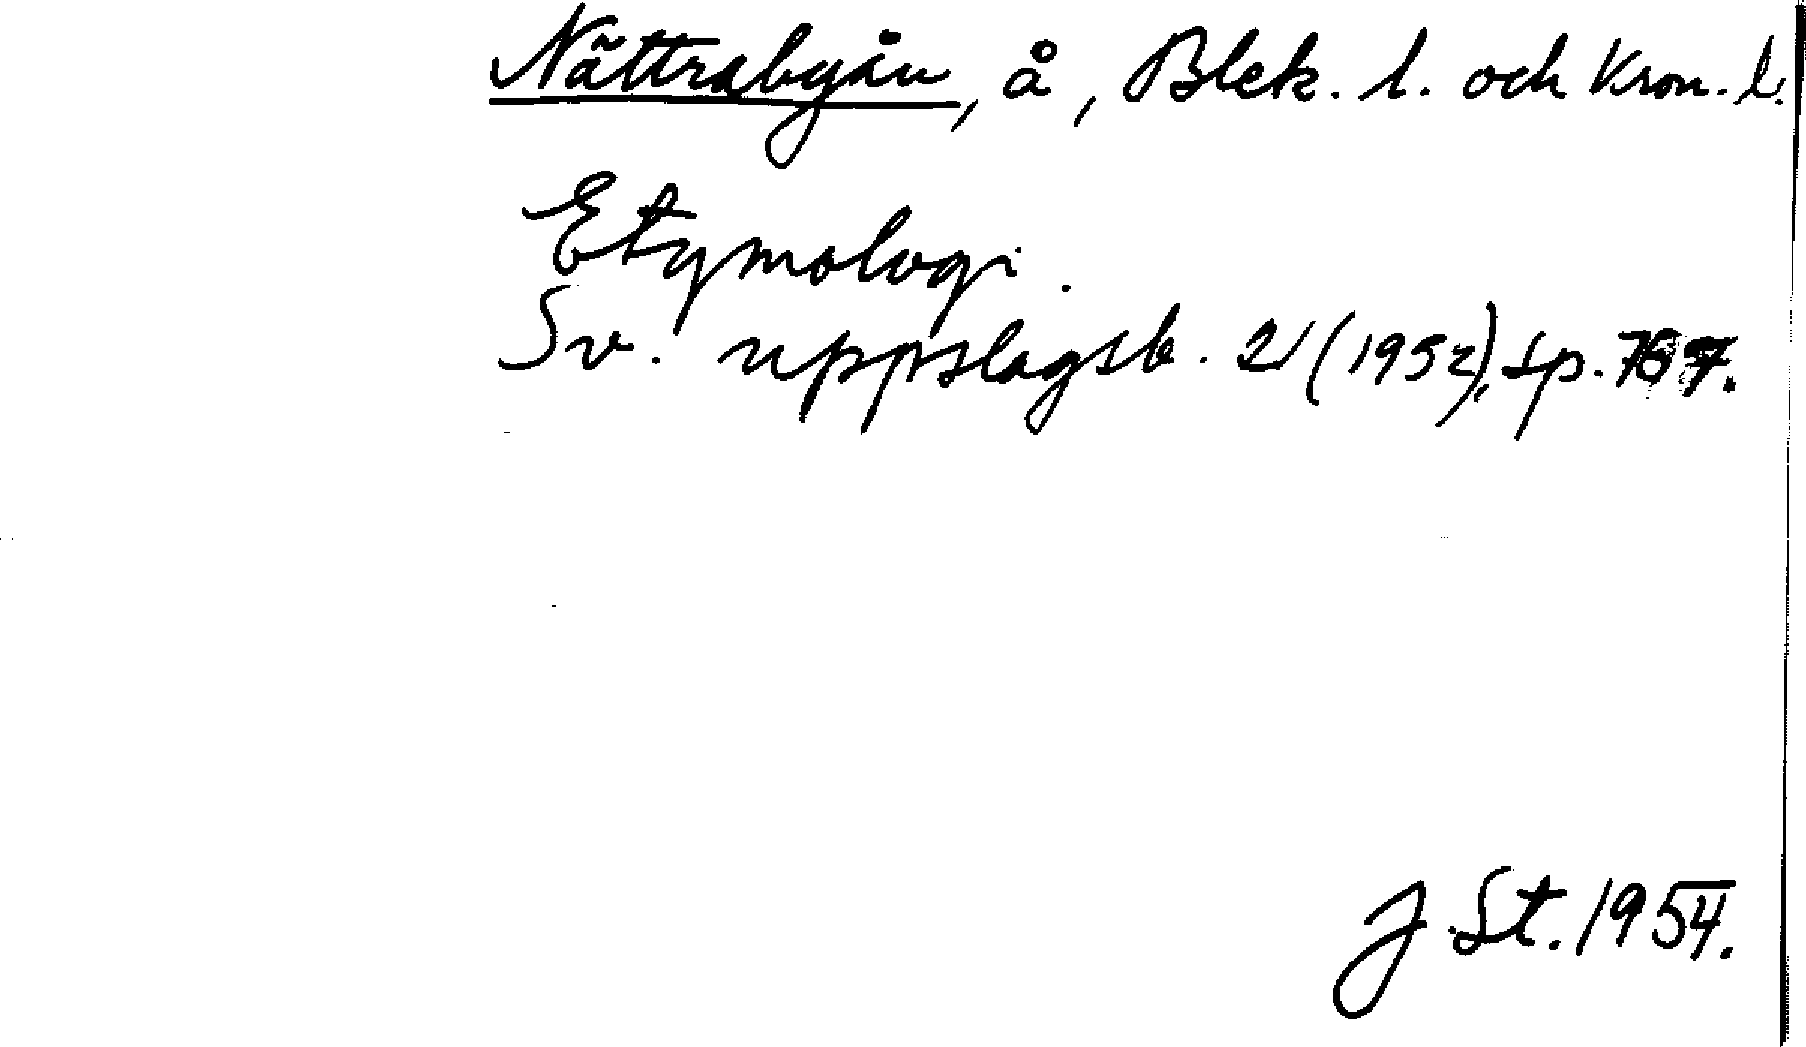 Nättrabyån, å, Blek. l. och Kron. l.
Etymologi.
Sv. uppslagsb. 21 (1952), sp.
J. St. 1954.